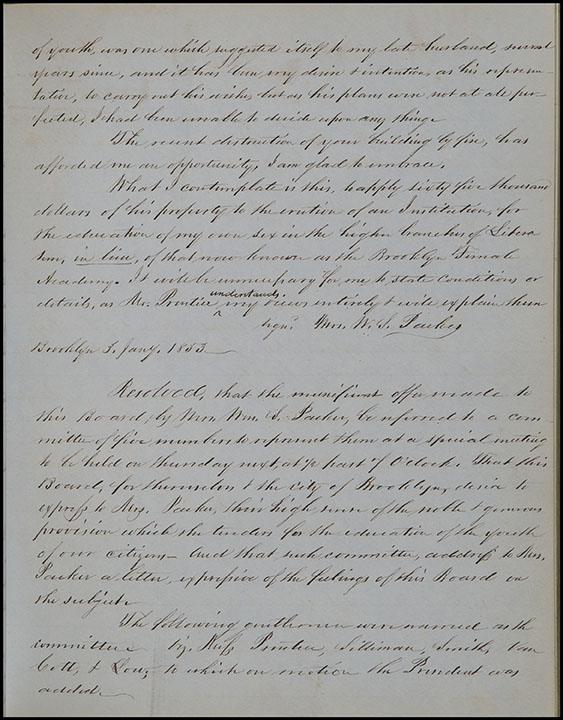 of youth, was one which suggested itself to my late husband, several
years since, and it has been my desire & intention, as his represen-
tative, to carry out his wishes, but as his plans were not at all per-
fected, I had been unable to decide upon any thing.
The recent destruction of your building by fire, has
afforded me an opportunity, I am glad to embrace.
What I contemplate is this, to apply sixty five thousand
dollars of his property to the erection of an Institution, for
the education of my own sex in the higher branches of Litera
ture, in lieu, of that now known as the Brooklyn Female
Academy. It will be unnecessary for me to state conditions or
details, as Mr. Prentice understands my views entirely & will explain them
Sign'd. Mrs. W. S. Packer
Brooklyn 3. Jany. 1853
Resolved, that the munificent offer made to
this Board, by Mrs Wm. S. Packer, be referred to a com-
mittee of five members to represent them at a special meeting
to be held on thursday next, at ½ past 7 O'clock. That this
Board, for themselves & the city of Brooklyn, desire to
express to Mrs. Packer, their high sense of the noble & generous
provision which she tenders for the education of the youth
of our citizens — And that such committee, address to Mrs.
Packer a letter, expressive of the feelings of this Board on
the subject.
The following gentlemen were named as the
committee Viz. Mess Prentice, Silliman, Smith, Van
Cott, & Low, to which on motion the President was
added.